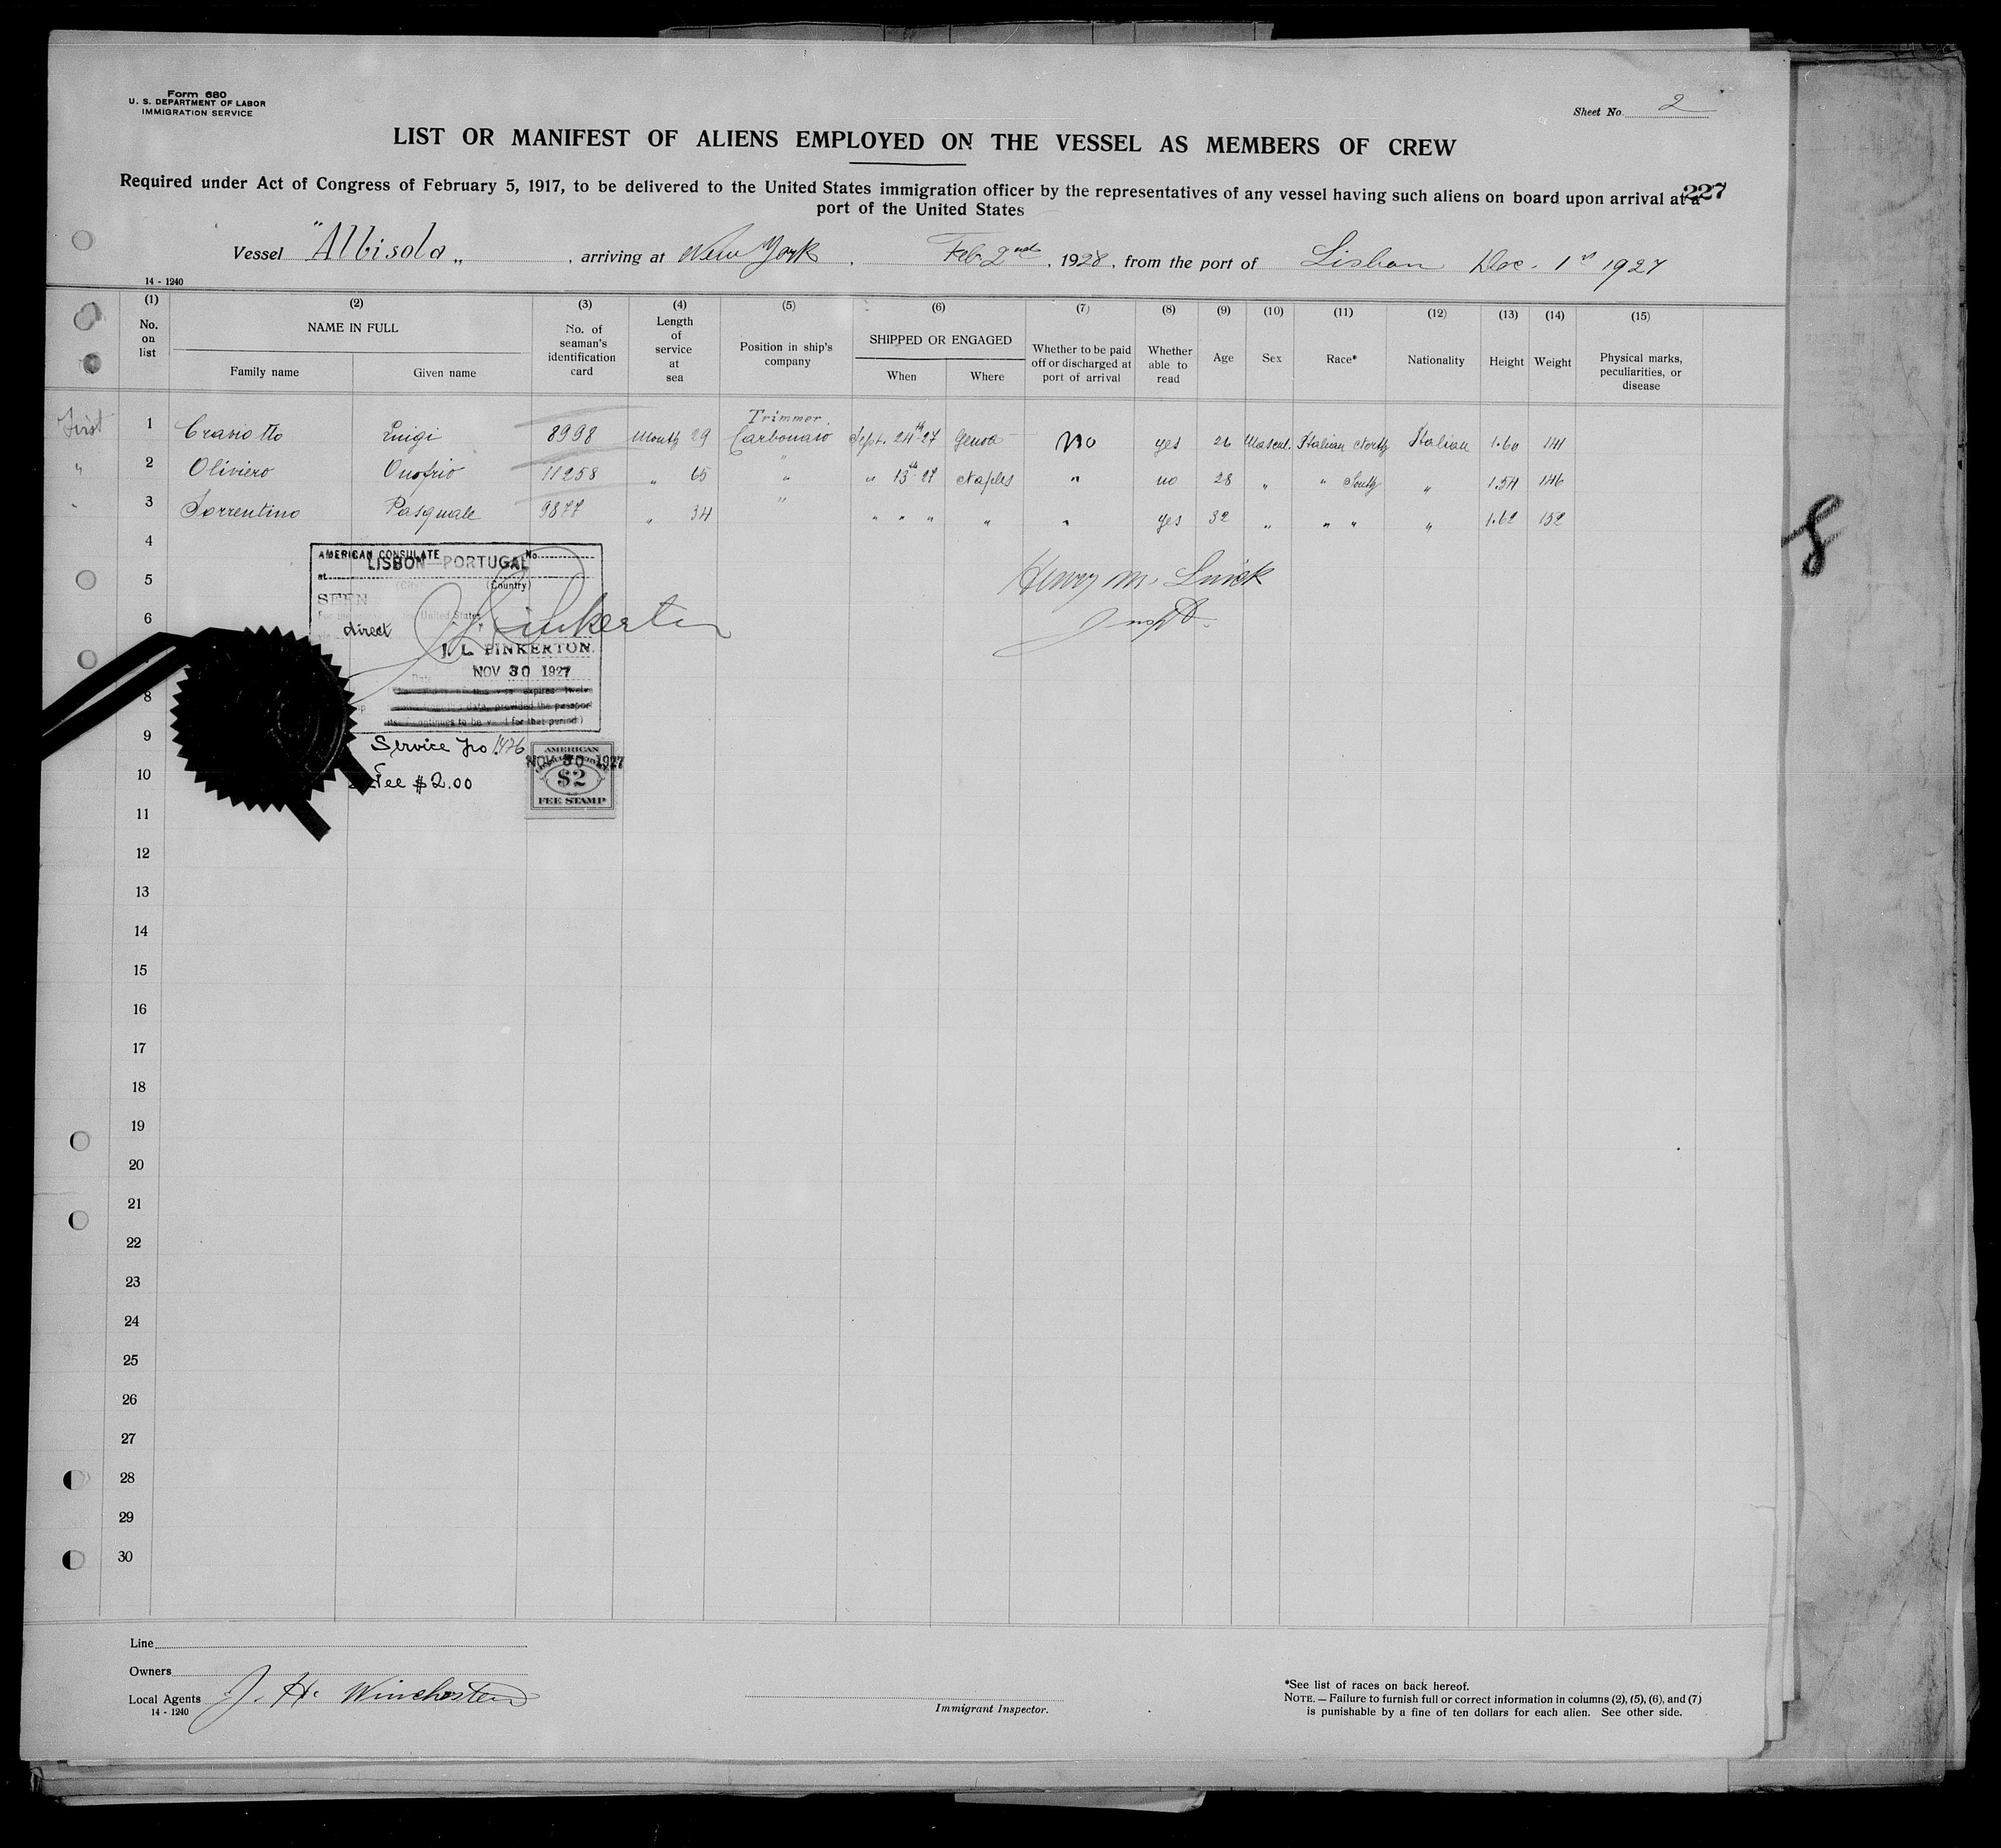 Form 680
U. S. DEPARTMENT OF LABOR
IMMIGRATION SERVICE
Sheet No. 2
LIST OR MANIFEST OF ALIENS EMPLOYED ON THE VESSEL AS MEMBERS OF CREW
Required under Act of Congress of February 5, 1917, to be delivered to the United States immigration officer by the representatives of any vessel having such aliens on board upon arrival at a
227
port of the United States
Vessel "Albisola„ , arriving at New York , Feb. 2nd , 1928, from the port of Lisbon Dec. 1st 1927
14 - 1240
(1) (2) (3) (4) (5) (6) (7) (8) (9) (10) (11) (12) (13) (14) (15)
No. on list
NAME IN FULL
Family name Given name
No. of seaman's identification card
Length of service at sea
Position in ship's company
SHIPPED OR ENGAGED
When Where
Whether to be paid off or discharged at port of arrival
Whether able to read
Age Sex Race* Nationality Height Weight
Physical marks, peculiarities, or disease
Trimmer
First 1 Luigi 8998 Month 29 Carbonaio Sept. 24th-27 Genoa No yes 26 Mascul. Italian North Italian 1.60 141
" 2 Oliviero Onofrio 11258 " 65 " " 13th-27 Naples " no 28 " " South " 1.54 146
" 3 Sorrentino Pasquale 9877 " 34 " " " " " " yes 32 " " " " 1.62 152
4
AMERICAN CONSULATE No.
LISBON—PORTUGAL
at
(City) (Country)
5
SEEN
Henry M.
6
United States
direct
Insptr
J. L. PINKERTON
Date NOV 30 1927
8
9
Service No 1476
10
Fee $2.00
AMERICAN
NOV 30 1927
$2
FEE STAMP
11
12
13
14
15
16
17
18
19
20
21
22
23
24
25
26
27
28
29
30
Line
Owners
Local Agents J. H. Winchester
14 - 1240
Immigrant Inspector.
*See list of races on back hereof.
NOTE. — Failure to furnish full or correct information in columns (2), (5), (6), and (7)
is punishable by a fine of ten dollars for each alien. See other side.
8